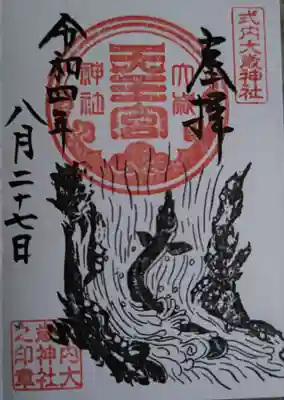 式内大歳神社
奉拝
天王宮
大歳
神社
令和四年
八月二十七日
内大
歳神社
之印章